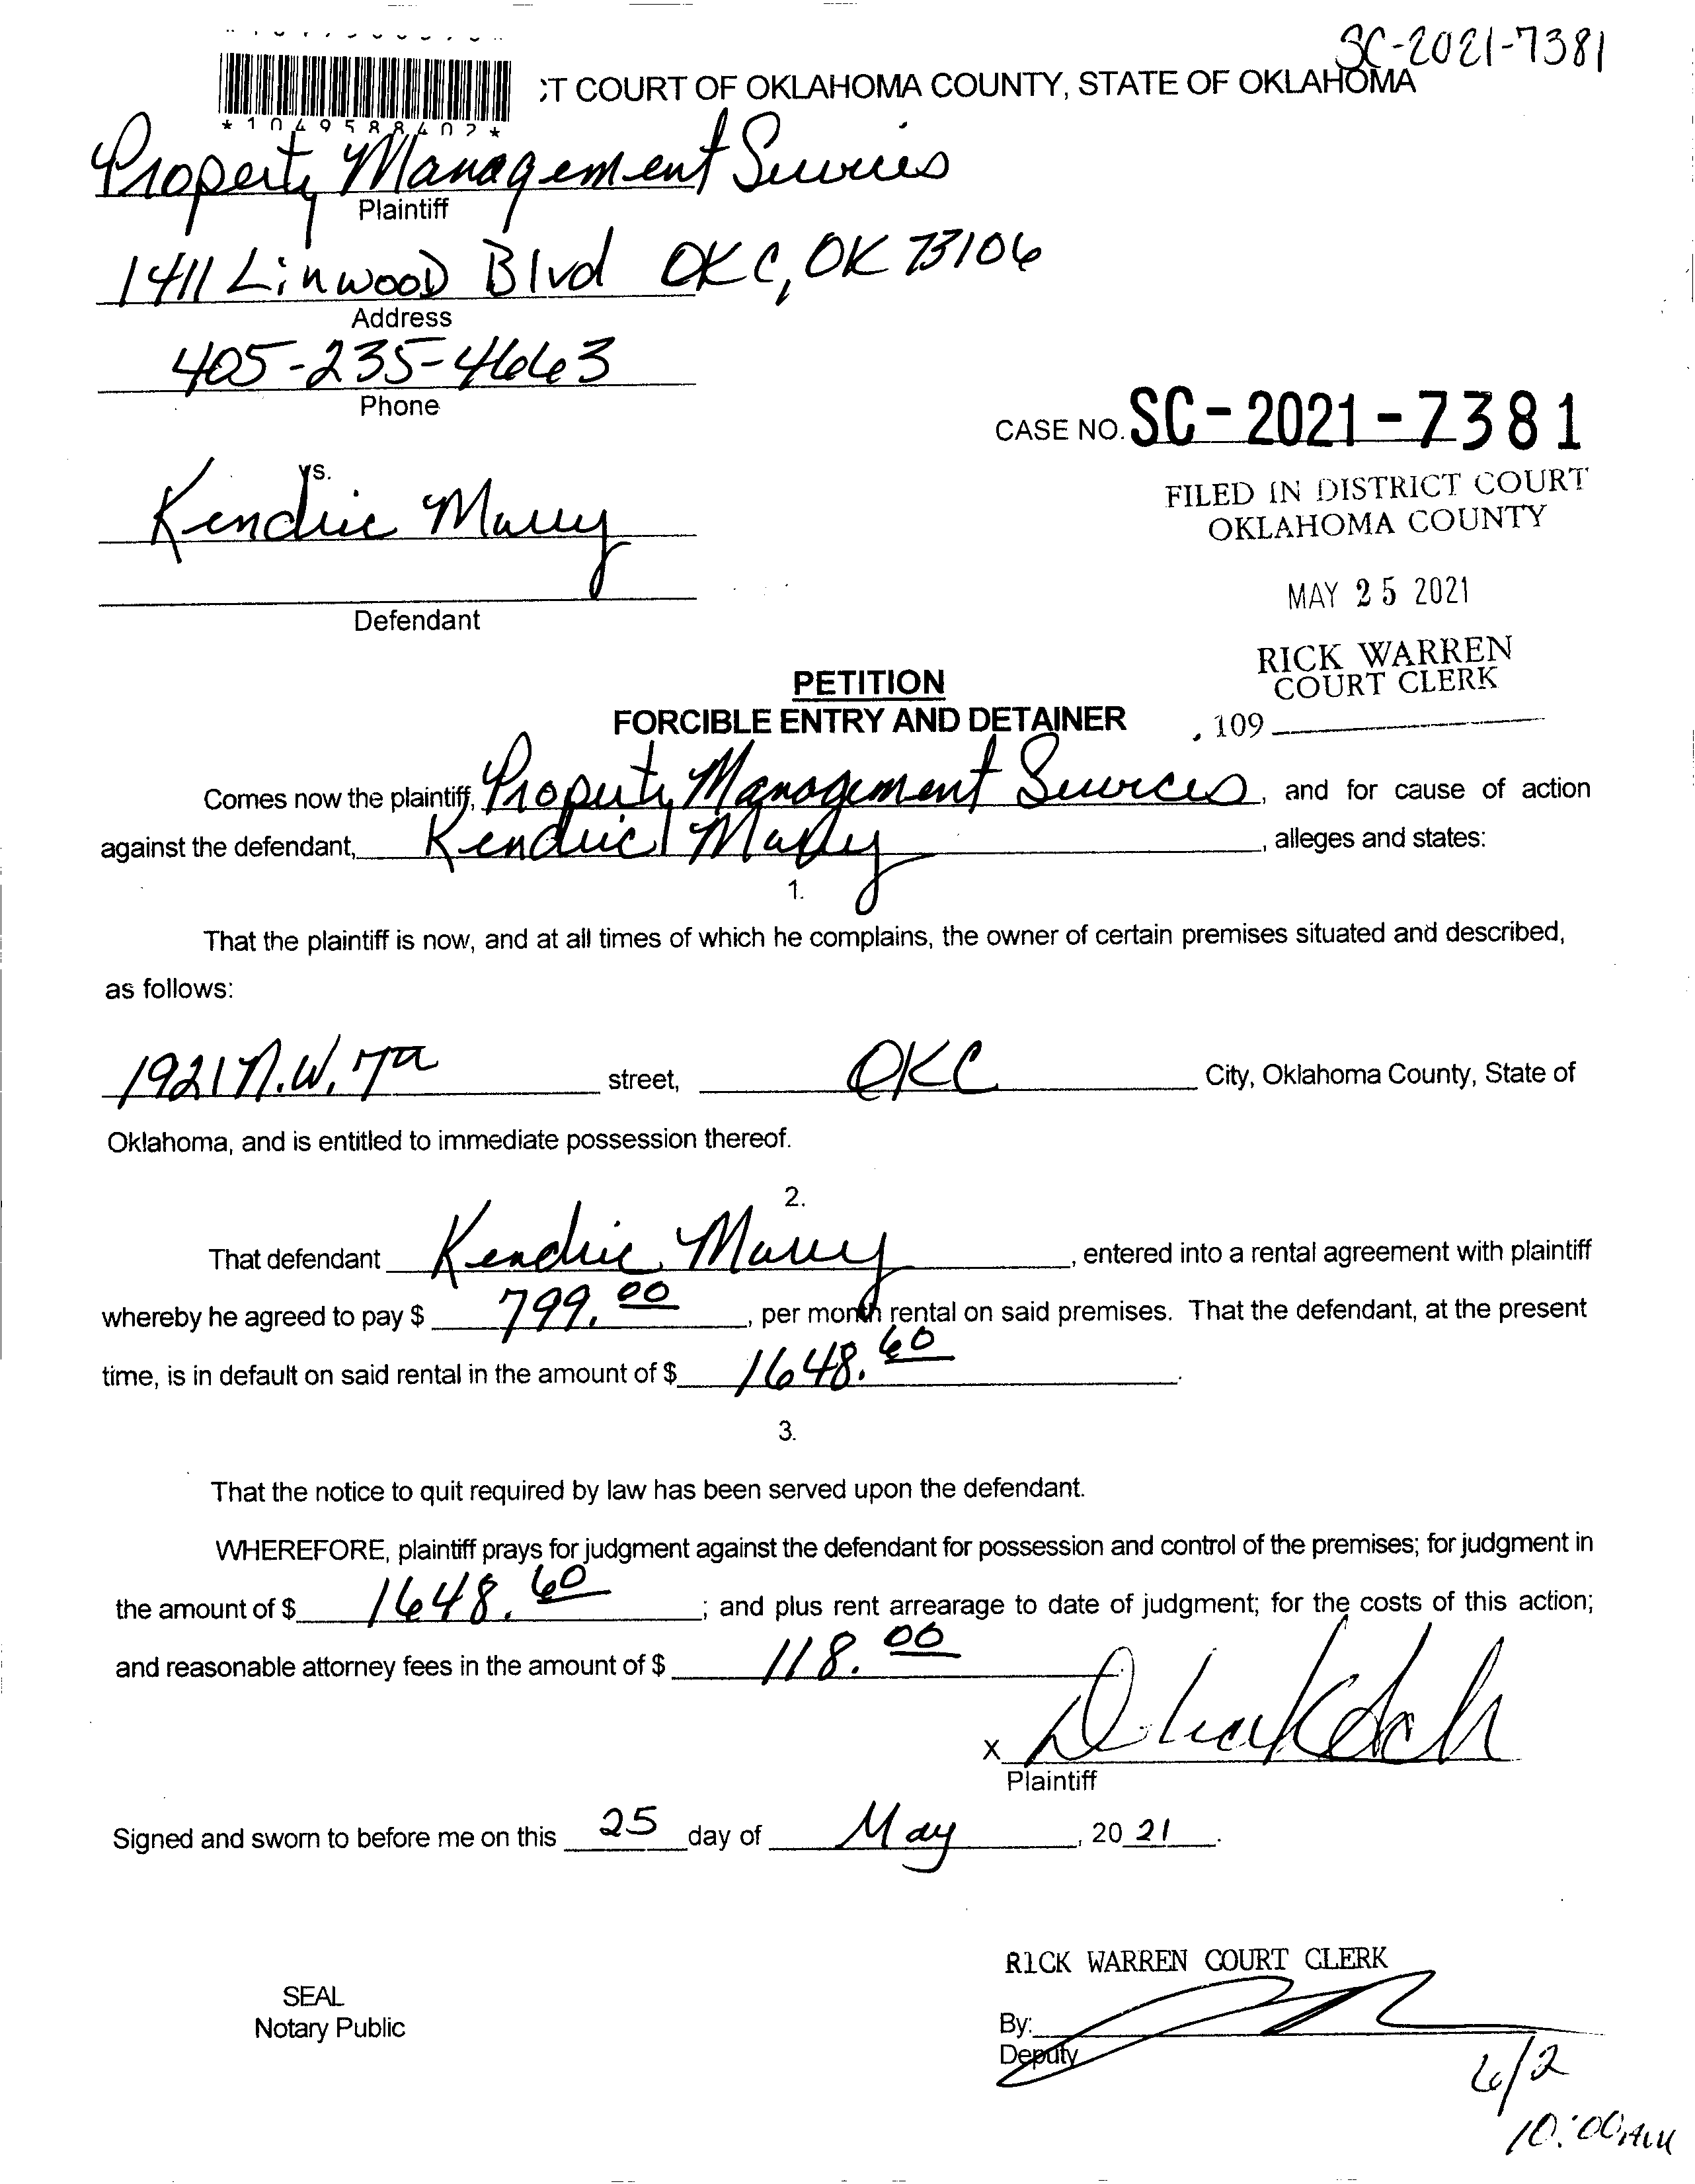 SC-2021-7381
T COURT OF OKLAHOMA COUNTY, STATE OF OKLAHOMA
*1049588402*
Property Management Services
Plaintiff
1411 Linwood Blvd OKC, OK 73106
Address
405-235-4663
Phone
CASE NO. SC-2021-7381
vs.
Kendric
FILED IN DISTRICT COURT
OKLAHOMA COUNTY
MAY 25 2021
Defendant
RICK WARREN
COURT CLERK
109
PETITION
FORCIBLE ENTRY AND DETAINER
Comes now the plaintiff, Property Management Services, and for cause of action
against the defendant, Kendric, alleges and states:
1.
That the plaintiff is now, and at all times of which he complains, the owner of certain premises situated and described,
as follows:
1921 N.W. street, OKC City, Oklahoma County, State of
Oklahoma, and is entitled to immediate possession thereof.
2.
That defendant Kendric, entered into a rental agreement with plaintiff
whereby he agreed to pay $ 799.00, per month rental on said premises. That the defendant, at the present
time, is in default on said rental in the amount of $ 1648.60.
3.
That the notice to quit required by law has been served upon the defendant.
WHEREFORE, plaintiff prays for judgment against the defendant for possession and control of the premises; for judgment in
the amount of $ 1648.60; and plus rent arrearage to date of judgment; for the costs of this action;
and reasonable attorney fees in the amount of $ 118.00
x
Plaintiff
Signed and sworn to before me on this 25 day of May, 20 21.
RICK WARREN COURT CLERK
SEAL
Notary Public
By:
Deputy
6/2
10:00AM